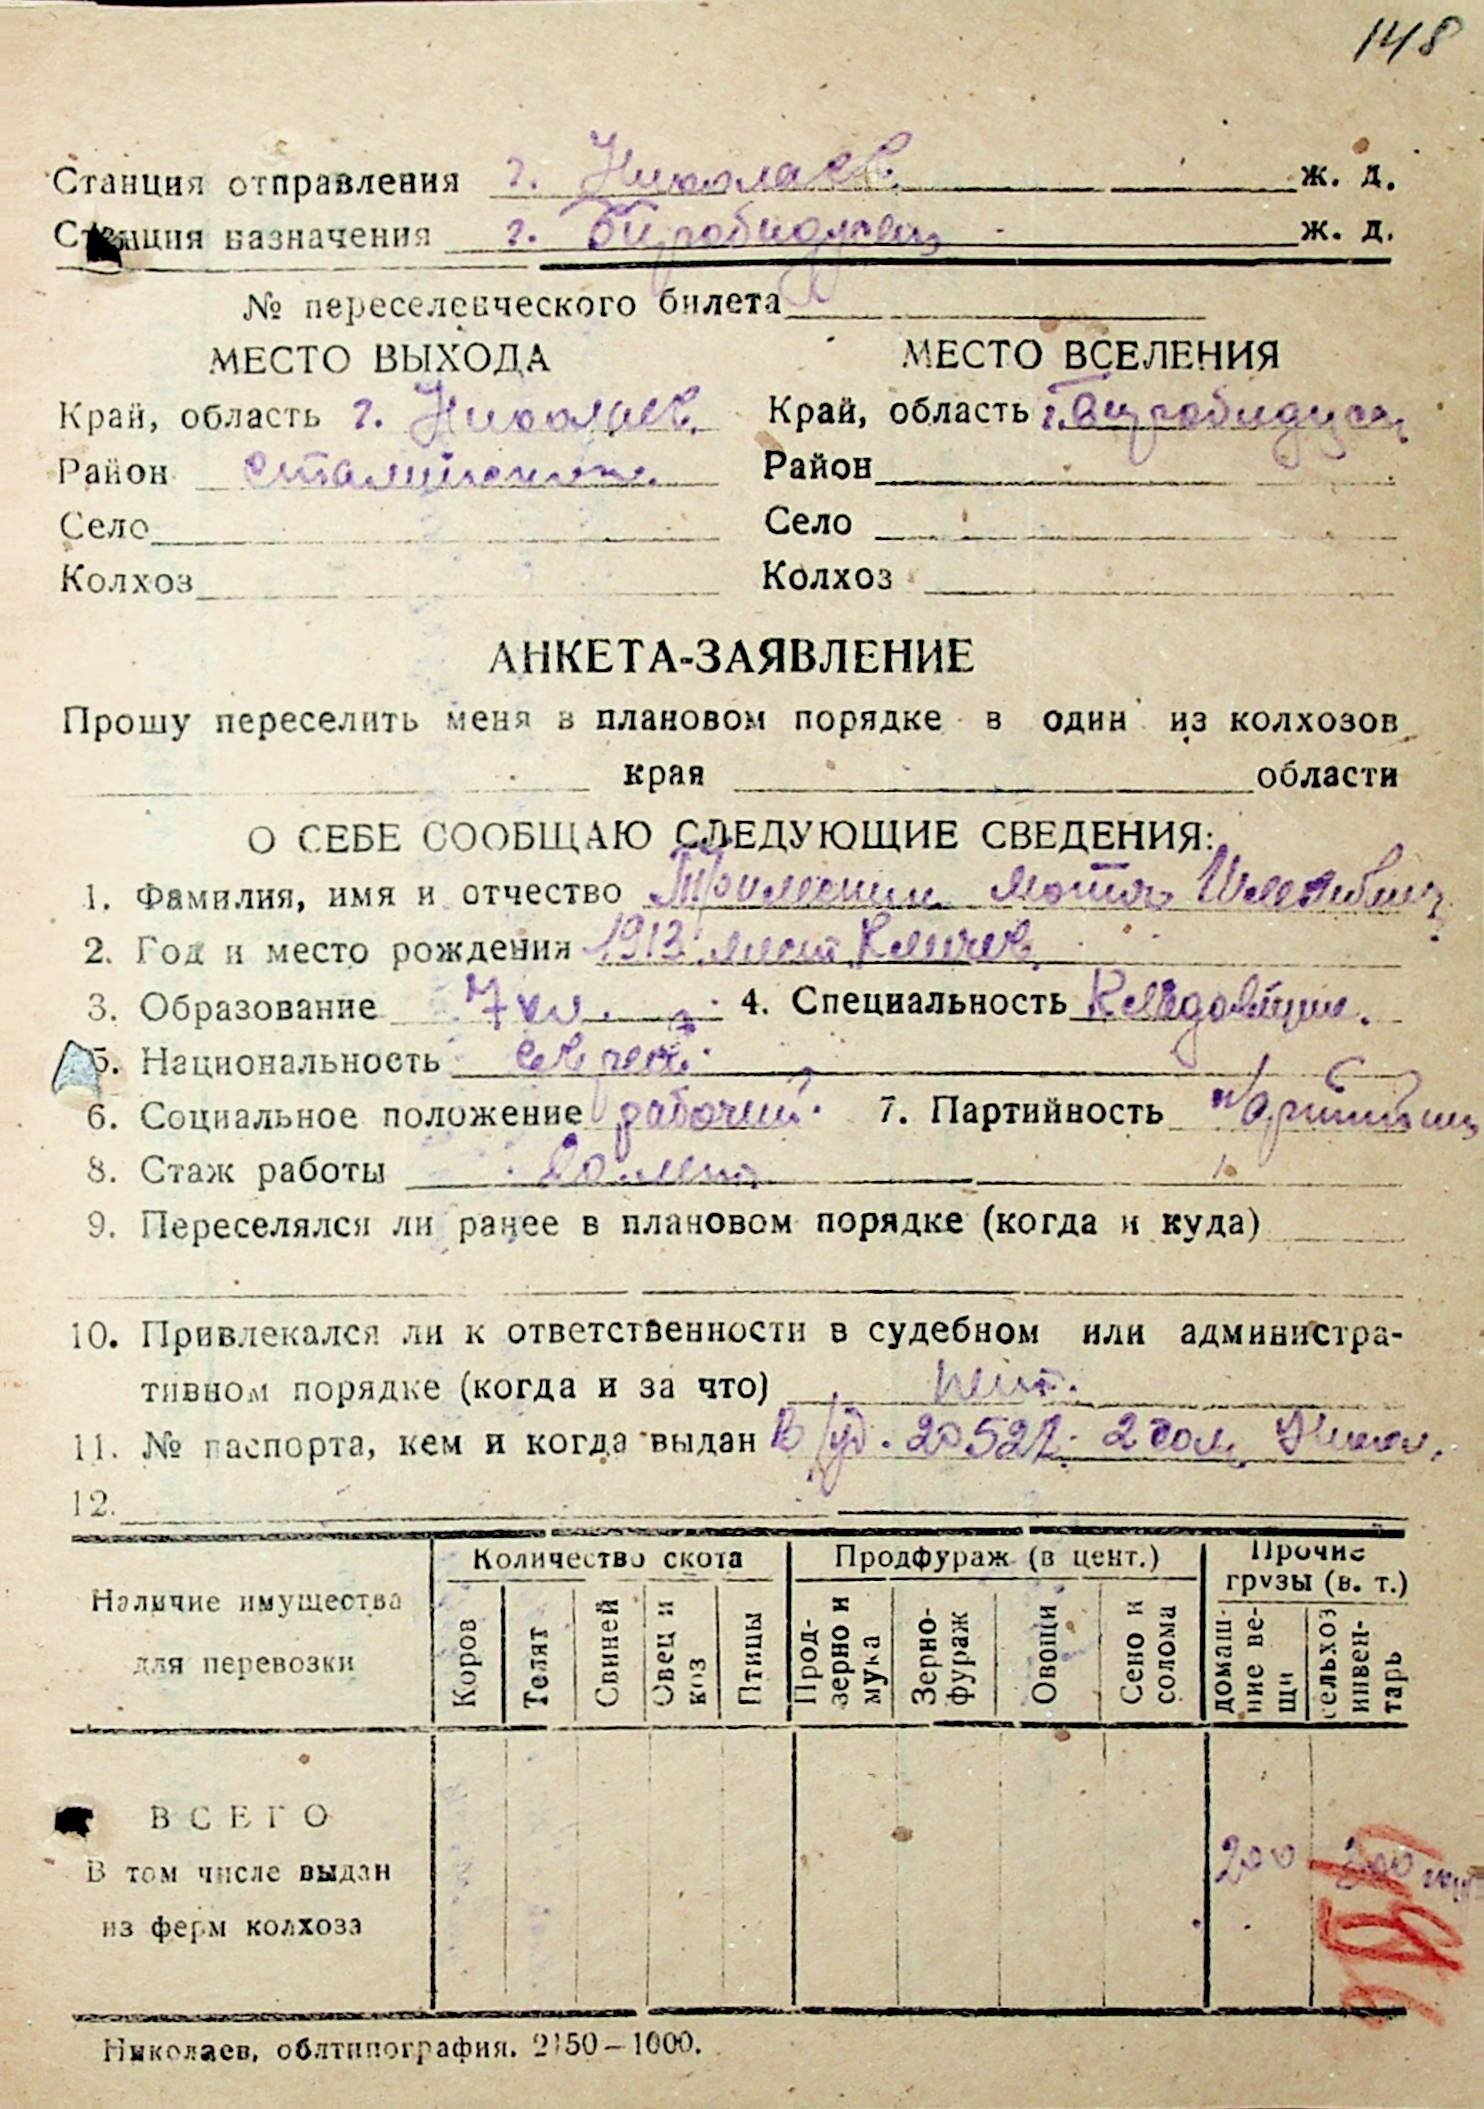 148
Станция отправления г. Николаев ж. д.
Станция назначения г. Биробиджан ж. д.
№ переселенческого билета
МЕСТО ВЫХОДА
Край, область г. Николаев
Район Сталинский
Село
Колхоз
МЕСТО ВСЕЛЕНИЯ
Край, область г. Биробиджан
Район
Село
Колхоз
АНКЕТА-ЗАЯВЛЕНИЕ
Прошу переселить меня в плановом порядке в один из колхозов
края области
О СЕБЕ СООБЩАЮ СЛЕДУЮЩИЕ СВЕДЕНИЯ:
1. Фамилия, имя и отчество
2. Год и место рождения 1913 мест. Кличев
3. Образование 7 кл. 4. Специальность Кладовщик.
5. Национальность еврей.
6. Социальное положение рабочий. 7. Партийность
8. Стаж работы 20 лет
9. Переселялся ли ранее в плановом порядке (когда и куда)
10. Привлекался ли к ответственности в судебном или администра-
тивном порядке (когда и за что) нет.
11. № паспорта, кем и когда выдан В/уд. 2 Никол.
12.
Наличие имущества
для перевозки
Количество скота
Коров
Телят
Свиней
Овец и
коз
Птицы
Продфураж (в цент.)
Прод-
зерно и
мука
Зерно-
фураж
Овощи
Сено и
солома
Прочие
грузы (в. т.)
домаш-
ние ве-
щи
сельхоз
инвен-
тарь
ВСЕГО
В том числе выдан
из ферм колхоза
200 300
Николаев, облтипография. 2150—1000.